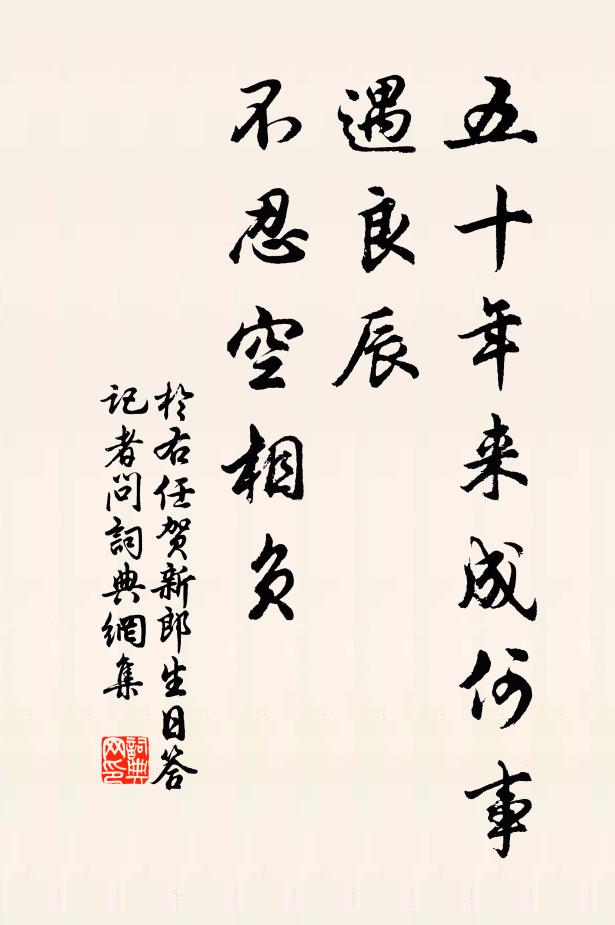 五十年来成何事
遇良辰
不忍空相负
於右任贺新郎生日答
记者问詞典網集
詞典網印